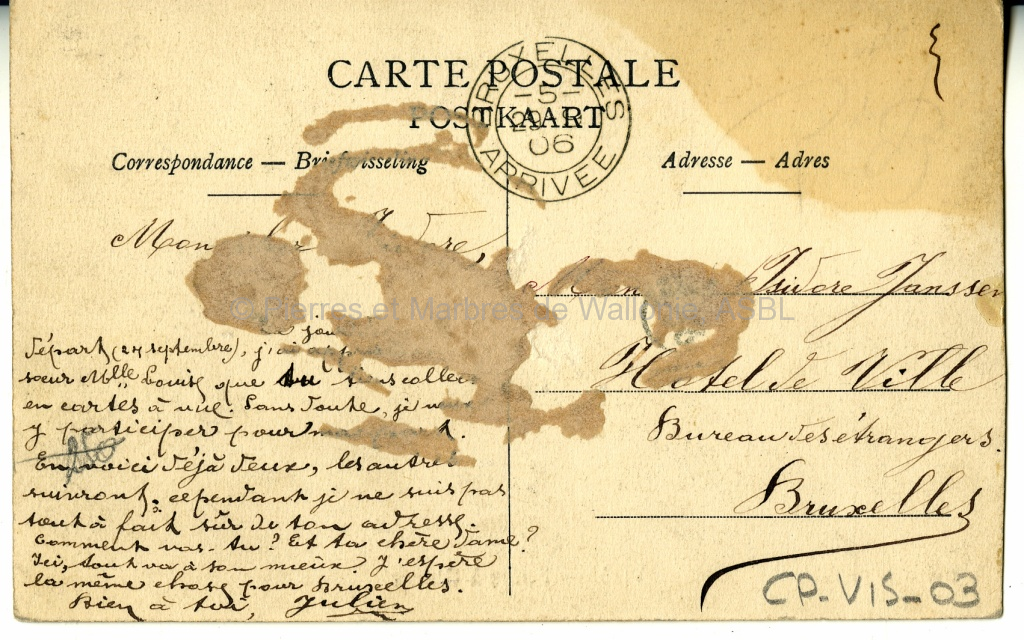 CARTE POSTALE
POSTKAART
BRUXELLES
5
06
ARRIVEE
Correspondance — Briefwisseling
Adresse — Adres
Mon
départ (24 septembre), j'ai
sœur Mlle Louise que tu collec
en cartes à vue. Sans doute, je
y participer pour
En voici déjà deux, les autres
suivront. cependant je ne suis pas
tout à fait sûr de ton adresse.
Comment vas-tu? Et ta chère dame?
Ici, tout va à son mieux J'espère
la même chose pour Bruxelles.
Bien à toi, Julien
Isidore Janssen
Hotel de Ville
Bureau des étrangers.
Bruxelles
© Pierres et Marbres de Wallonie ASBL
CP-VIS-03